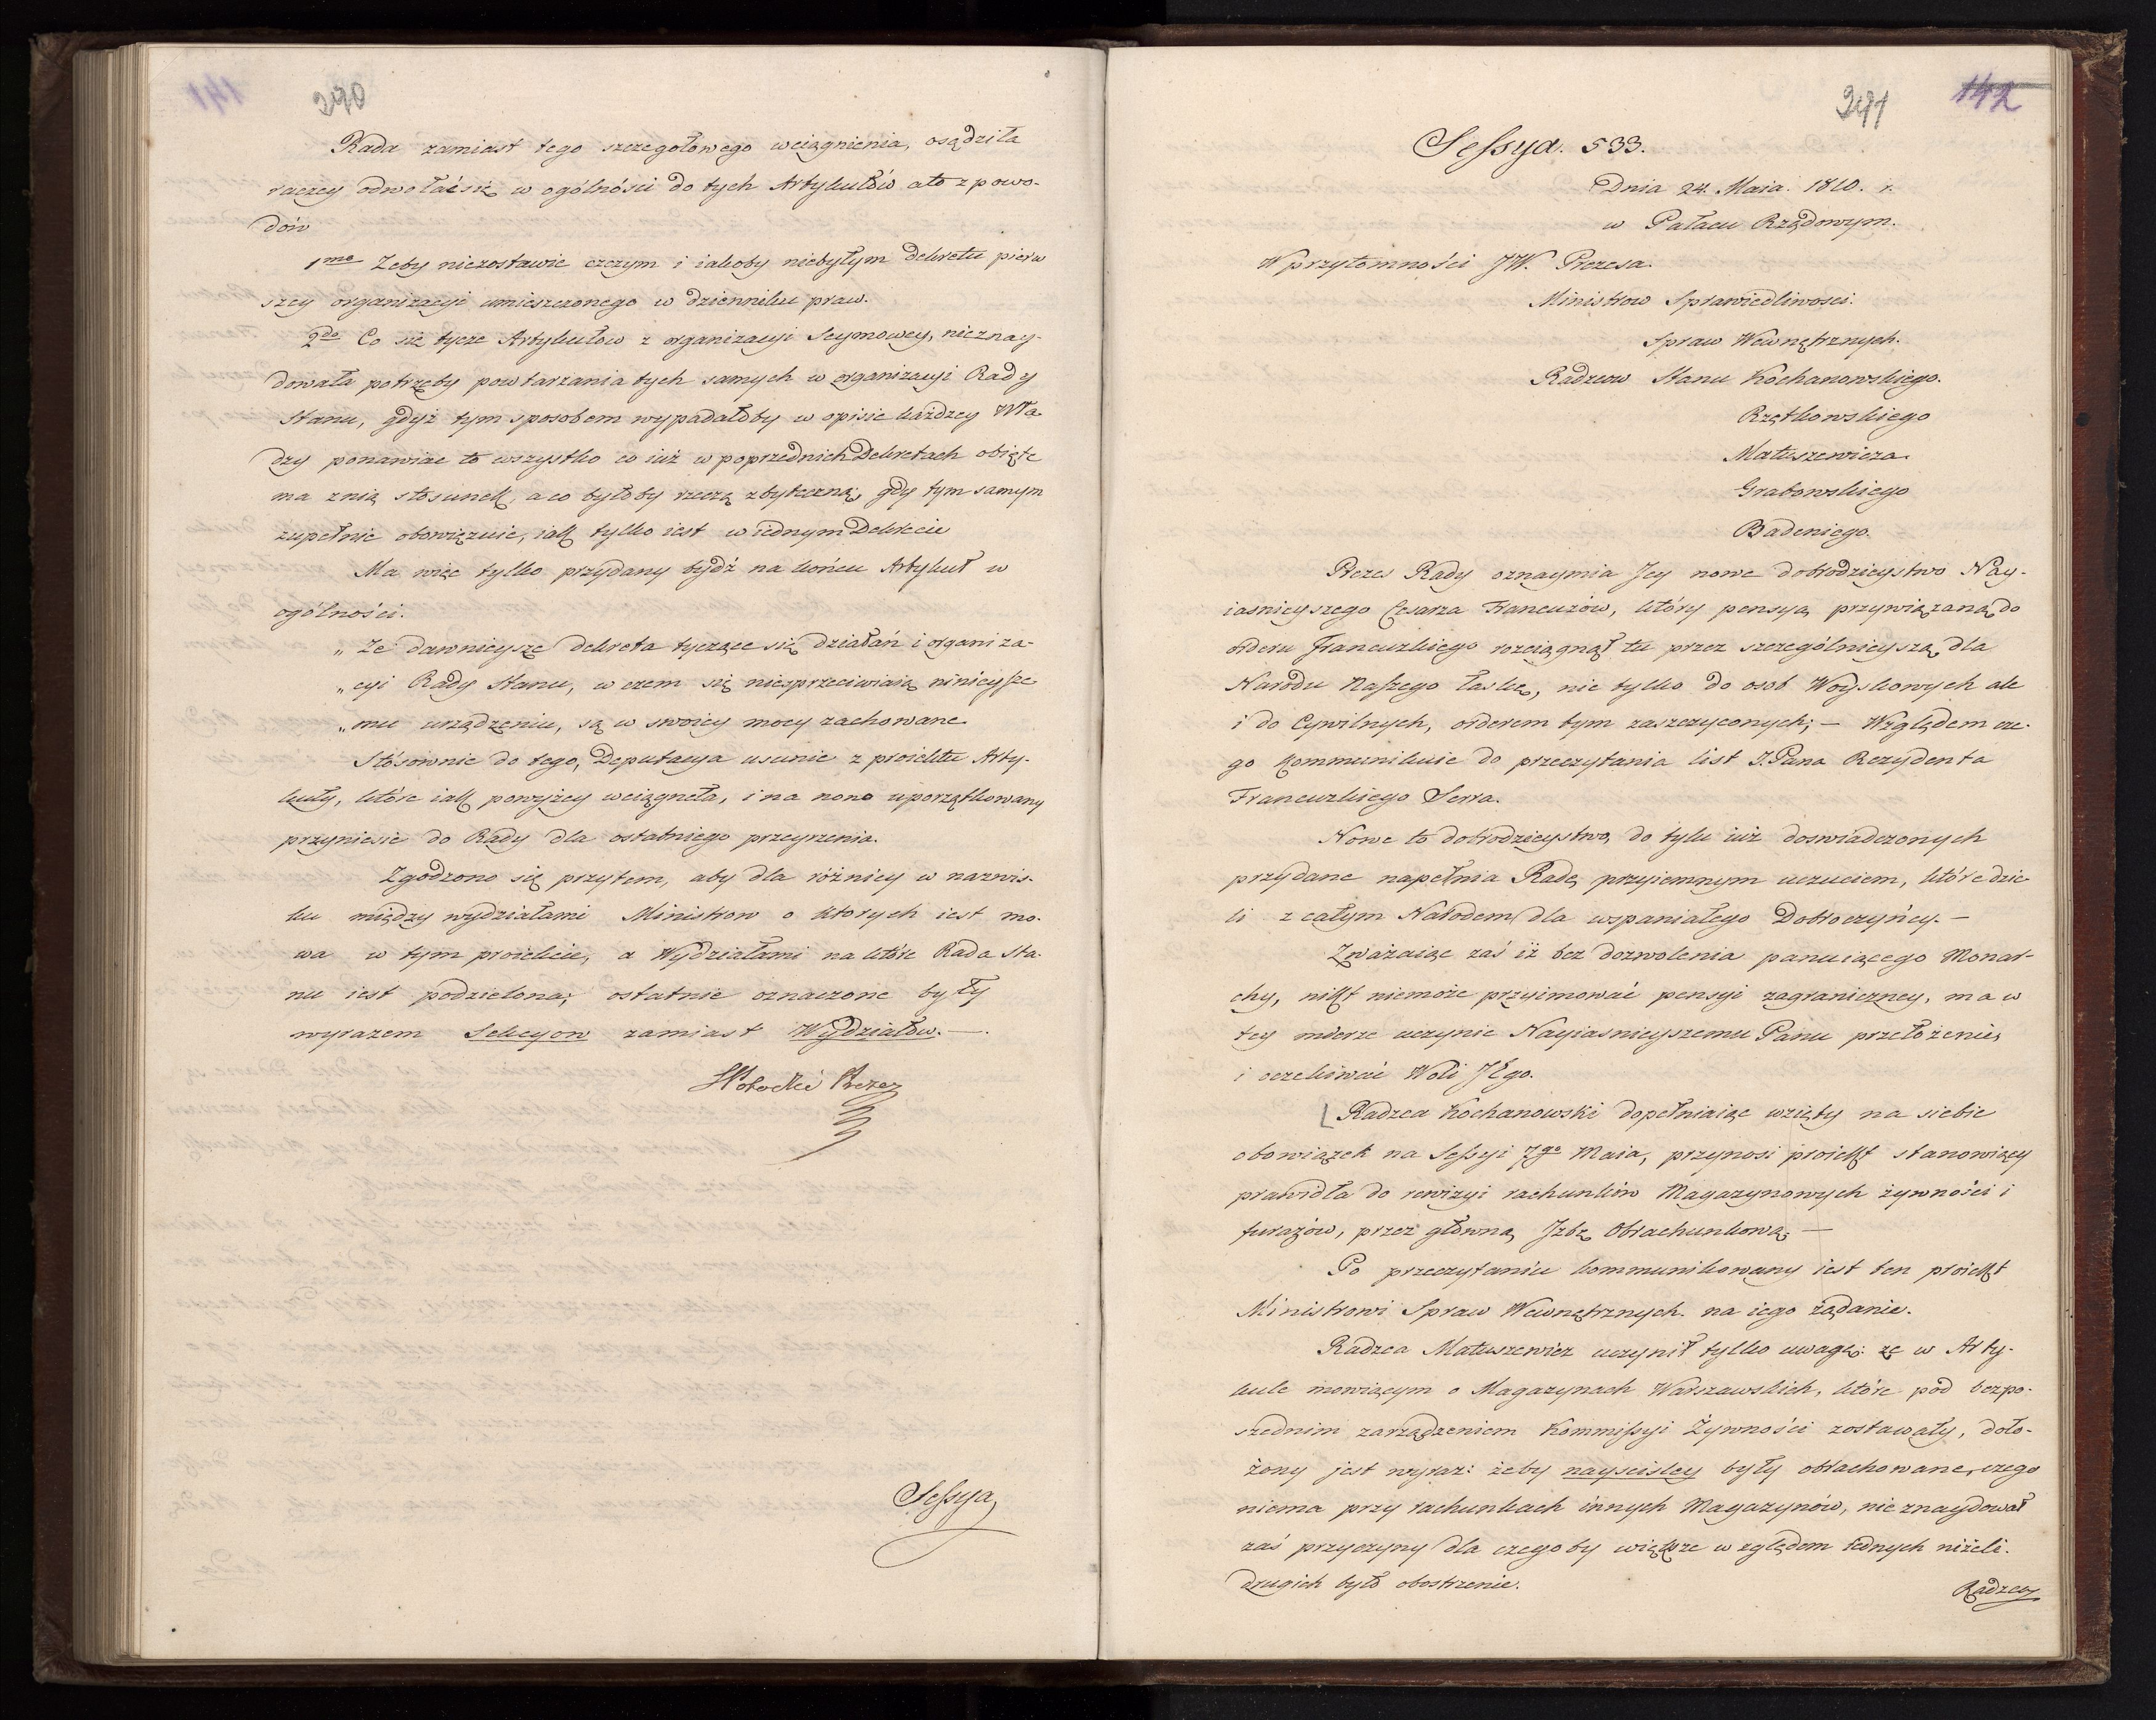 290
Rada zamiast tego szczegołowego wciągnienia, osądziła
raczey odwołać się w ogólności do tych Artykułów a to z powo-
dów
1mo Zeby niezostawic czczym i iakoby niebyłym Dekretu pierw
szey organizacyi umieszczonego w dzienniku praw.
2do Co się tycze Artykułow z organizacyi Seymowey, nieznay-
dowała potrzeby powtarzania tych samych w organizacyi Rady
Stanu, gdyż tym sposobem wypadałoby w opisie każdzey Wła
dzy ponawiac to wszystko co iuż w poprzednich Dekretach obięte
ma z nią stosunek, a co byłoby rzeczą zbyteczną, gdy tym samym
zupełnie obowięzuie, iak tylko iest w iednym Dekrecie
Ma więc tylko przydany bydź na końcu Artykuł w
ogólności.
„ Ze dawnieysze dekreta tyczące się działań i organiza-
„ cyi Rady Stanu, w czem się niesprzeciwiaią ninieysze
„ mu urządzeniu, są w swoiey mocy zachowane
Stósownie do tego, Deputacya usunie z proiektu Arty-
kuły, które iak powyżey wciągneła, i na nono uporządkowany
przyniesie do Rady dla ostatniego przeyrzenia.
Zgodzono się przytem, aby dla różnicy w nazwis-
ku między wydziałami Ministrow o ktorych iest mo-
wa w tym proiekcie, a Wydziałami na które Rada Sta-
nu iest podzielona; ostatnie oznaczone były
wyrazem Sekcyow zamiast Wydziałów. —
Potocki Prezes
Sessya
291 142
Sessya. 533.
Dnia 24. Maia. 1810. r.
w Pałacu Rządowym.
W przytomności JW. Prezesa.
Ministrow Sprawiedliwosci.
Spraw Wewnętrznych.
Radzcow Stanu Kochanowskiego.
Rzętkowskiego
Matuszewicza.
Grabowskiego
Badeniego.
Prezes Rady oznaymia Jey nowe dobrodzieystwo Nay-
iasnieyszego Cesarza Francuzów, który pensyą przywiązaną do
orderu Francuzkiego rozciągnął tu przez szczególnieyszą dla
Narodu Naszego łaskę, nie tylko do osob Woyskowych ale
i do Cywilnych, orderem tym zaszczyconych; — Względem cze-
go Kommunikuie do przeczytania list J. Pana Rezydenta
Francuzkiego Serra.
Nowe to dobrodzieystwo, do tylu iuż doswiadczonych
przydane napełnia Radę przyiemnym uczuciem, które dzie
li z całym Narodem dla wspaniałego Dobroczyńcy. —
Zważaiąc zaś iż bez dozwolenia panuiącego Monar-
chy, nikt niemoże przyimować pensyi zagraniczney, ma w
tey mierze uczynic Nayiasnieyszemu Panu przełożenie,
i oczekiwać Woli JEgo.
Radzca Kochanowski dopełniaiąc wzięty na siebie
obowiązek na Sessyi 7go Maia, przynosi proiekt stanowiący
prawidła do rewizyi rachunków Magazynowych żywności i
furażów, przez główną Jzbę Obrachunkową. —
Po przeczytaniu kommunikowany iest ten proiekt
Ministrowi Spraw Wewnętrznych na iego żądanie.
Radzca Matuszewicz uczynił tylko uwagę: że w Arty-
kule mowiącym o Magazynach Warszawskich, które pod bezpo-
srednim zarządzeniem Kommissyi Żywności zostawały, doło-
żony jest wyraz: żeby nayscisley były obrachowane, czego
niema przy rachunkach innych Magazynów, nieznaydował
zaś przyczyny dla czegoby większe względem iednych niżeli
drugich było obostrzenie.
Radzca